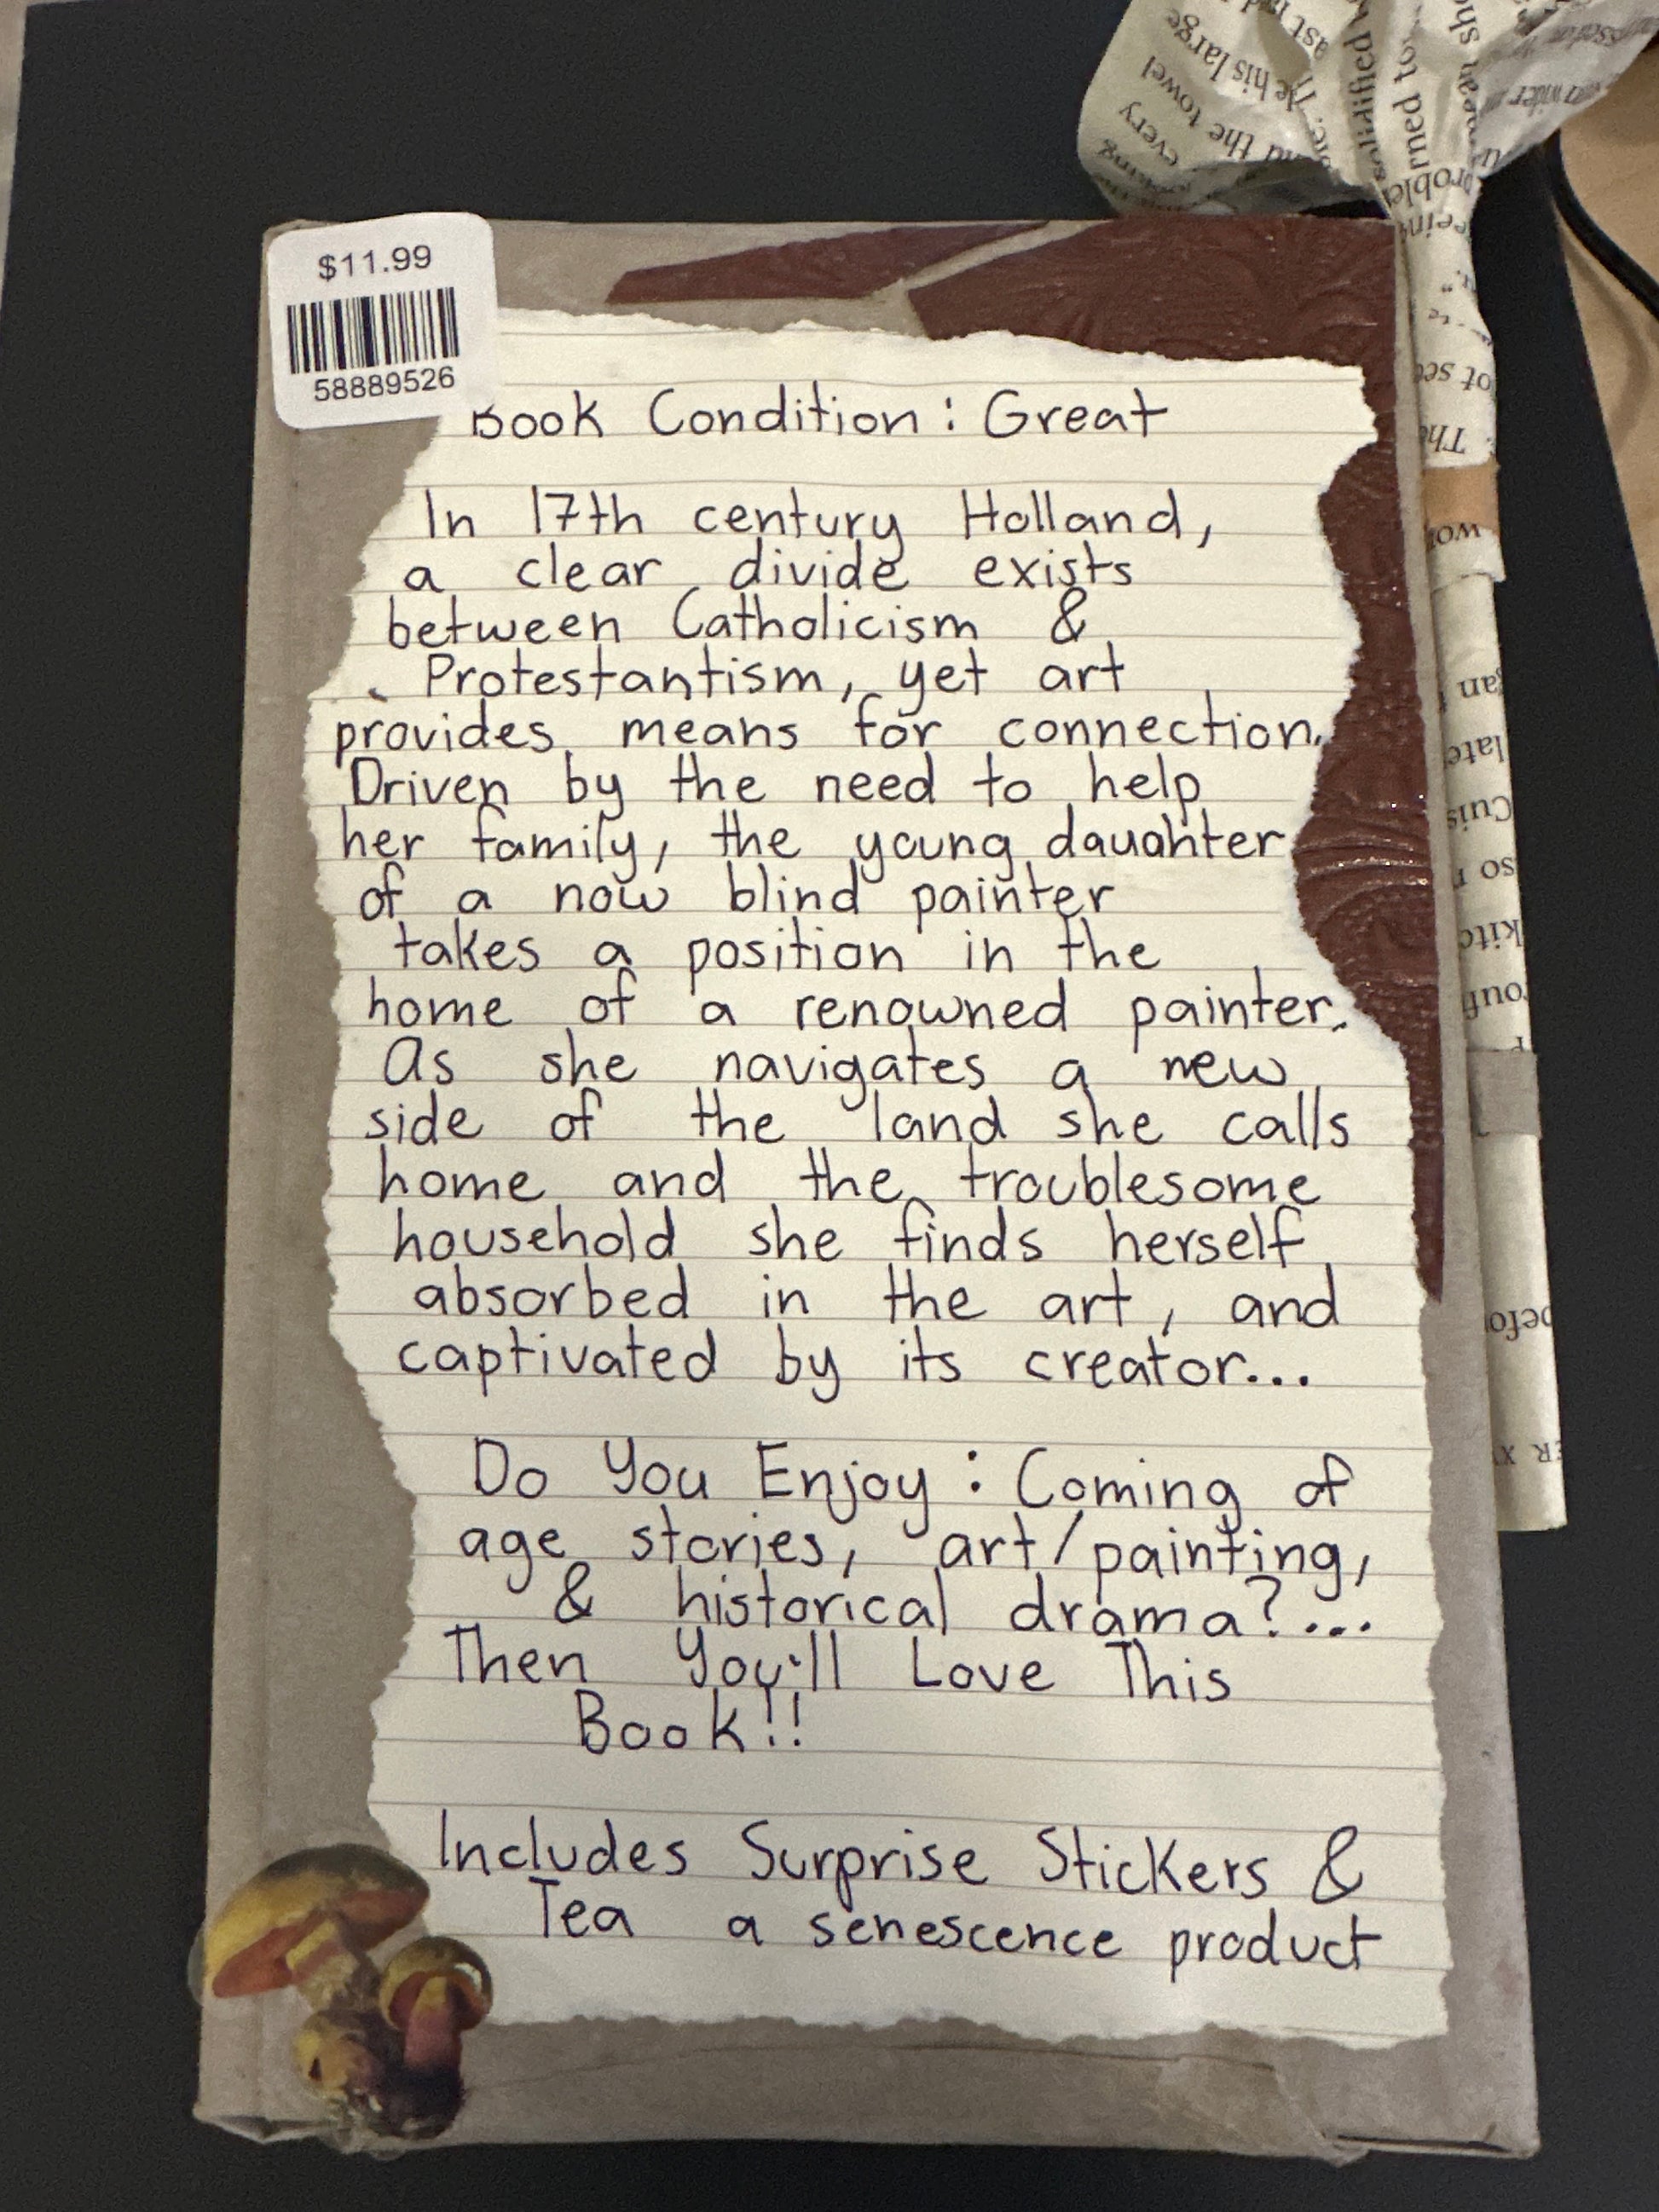 $11.99
58889526
Book Condition: Great
In 17th century Holland,
a clear divide exists
between Catholicism &
Protestantism, yet art
provides means for connection.
Driven by the need to help
her family, the young daughter
of a now blind painter
takes a position in the
home of a renowned painter.
As she navigates a new
side of the land she calls
home and the troublesome
household she finds herself
absorbed in the art, and
captivated by its creator...
Do You Enjoy: Coming of
age stories, art/painting,
& historical drama?...
Then You'll Love This
Book!!
Includes Surprise Stickers &
Tea a senescence product
his large
the towel
every
solidified